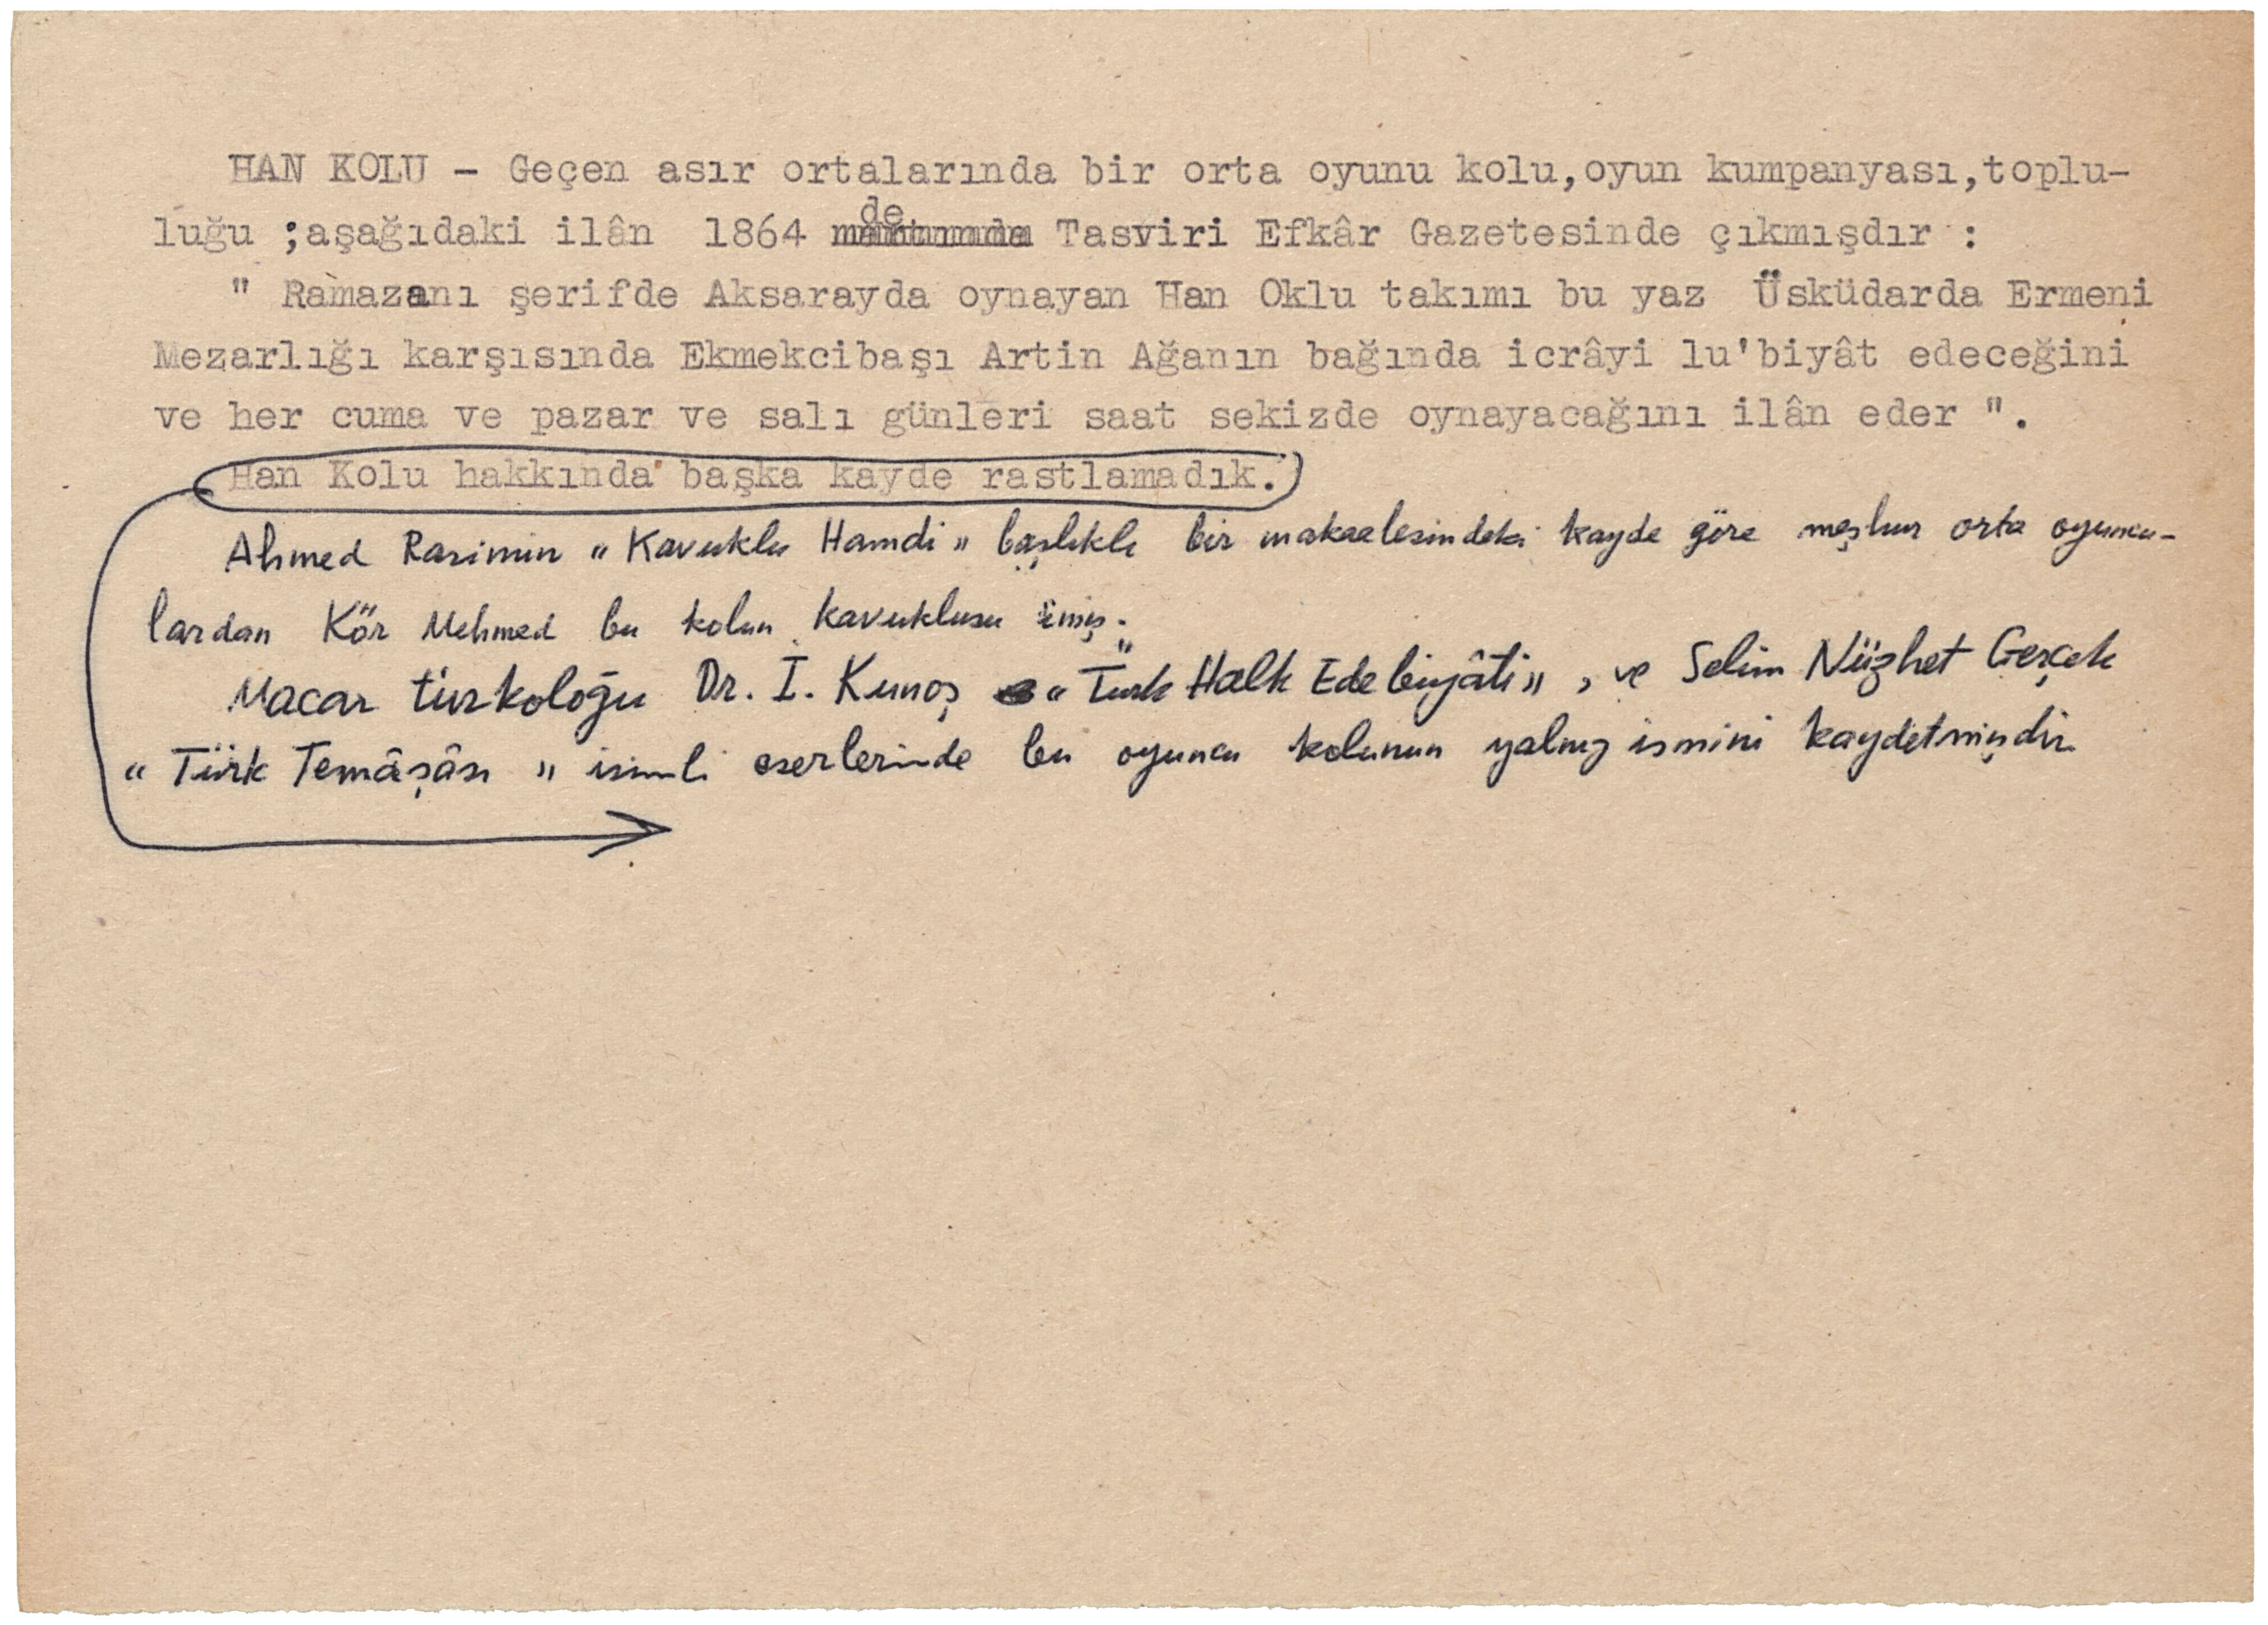 HAN KOLU - Geçen asır ortalarında bir orta oyunu kolu,oyun kumpanyası,toplu-
luğu ;aşağıdaki ilân 1864 de Tasviri Efkâr Gazetesinde çıkmışdır :
" Ramazanı şerifde Aksarayda oynayan Han Oklu takımı bu yaz Üsküdarda Ermeni
Mezarlığı karşısında Ekmekcibaşı Artin Ağanın bağında icrâyi lu'biyât edeceğini
ve her cuma ve pazar ve salı günleri saat sekizde oynayacağını ilân eder ".
Han Kolu hakkında başka kayde rastlamadık.
Ahmed Rasimin "Kavuklu Hamdi" başlıklı bir makaalesindeki kayde göre meşhur orta oyuncu-
lardan Kör Mehmed bu kolun kavuklusu imiş.
Macar türkoloğu Dr. I. Kunoş "Türk Halk Edebiyâti", ve Selim Nüzhet Gerçek
"Türk Temâşâsı" isimli eserlerinde bu oyuncu kolunun yalnız ismini kaydetmişdir